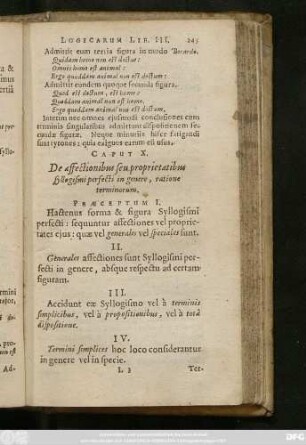 LOGICARUM LIB. III. 245
Admittit eum tertia figura in modo Bocardo.
Quidam homo non est doctus:
Omnis homo est animal:
Ergo quoddam animal non est doctum:
Admittit eundem quoque secunda figura.
Quod est doctum, est homo:
Quoddam animal non est homo,
Ergo quoddam animal non est doctum,
Interim nec omnes ejusmodi conclusiones cum
terminis singularibus admittunt dispositionem se-
cundæ figuræ. Neque minutiis hisce fatigandi
sunt tyrones: quia exiguus earum est usus.
CAPUT X.
De affectionibus seu proprietatibus
syllogismi perfecti in genere, ratione
terminorum.
PRÆCEPTUM I.
Hactenus forma & figura Syllogismi
perfecti: sequuntur affectiones vel proprie-
tates ejus: quæ vel generales vel speciales sunt.
II.
Generales affectiones sunt Syllogismi per-
fecti in genere, absque respectu ad certam
figuram.
III.
Accidunt eæ Syllogismo vel à terminis
simplicibus, vel à propositionibus, vel à totâ
dispositione.
IV.
Termini simplices hoc loco considerantur
in genere vel in specie.
L 3 Ter-